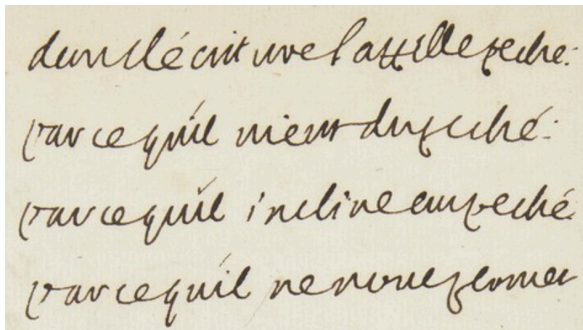 dans l'écriture l'appelle peché.
parce qu'il vient du peché.
parce qu'il incline au peché
parce qu'il ne nous permet